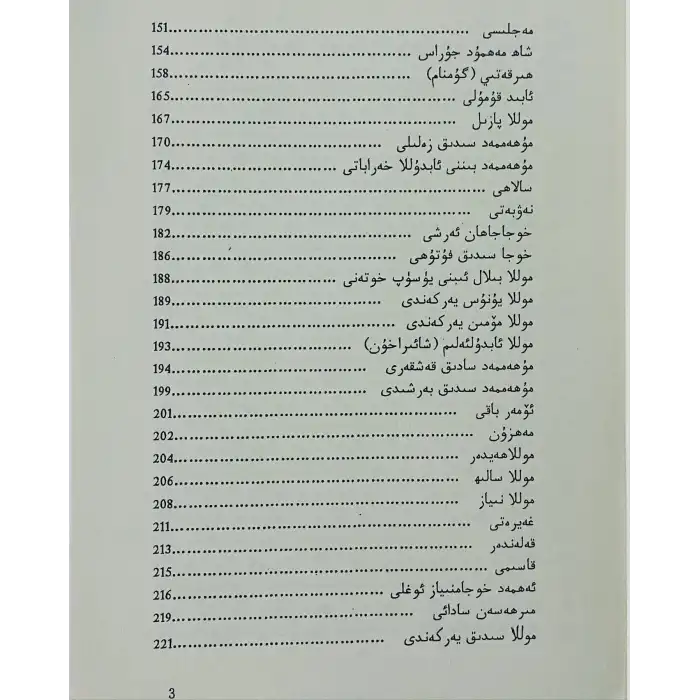 مەجلىسى ........................................151
شاھ مەھمۇد جۇراس ........................................154
ھىرقەتىي (گۇمنام) ........................................158
ئابىد قۇمۇلى ........................................165
موللا پازىل ........................................167
مۇھەممەد سىدىق زەلىلى ........................................170
مۇھەممەد بىننى ئابدۇللا خەراباتى ........................................174
سالاھى ........................................177
نەۋبەتى ........................................179
خوجاجاھان ئەرشى ........................................182
خوجا سىدىق فۇتۇھى ........................................186
موللا بىلال ئىبنى يۈسۈپ خوتەنى ........................................188
موللا يۇنۇس يەركەندى ........................................189
موللا مۆمىن يەركەندى ........................................191
موللا ئابدۇلئەلىم (شائىراخۇن) ........................................193
مۇھەممەد سادىق قەشقەرى ........................................194
مۇھەممەد سىدىق بەرشىدى ........................................199
ئۆمەر باقى ........................................201
مەھزۇن ........................................202
موللاھەيدەر ........................................204
موللا سالىھ ........................................206
موللا نىياز ........................................208
غەيرەتى ........................................211
قەلەندەر ........................................213
قاسىمى ........................................215
ئەھمەد خوجامنىياز ئوغلى ........................................216
مىرھەسەن سادائى ........................................219
موللا سىدىق يەركەندى ........................................221
3